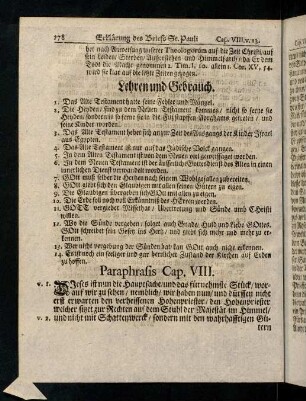 278 Erklärung des Briefs St. Pauli Cap. VIII. v. 13.
hat nach Anweisung unserer Theologorum auf die Zeit Christi, auf
sein Leiden, Sterben, Auferstehen und Himmelfahrt, da Er dem
Tode die Macht genommen 2. Tim. I, 10. allein 1. Cor. XV, 54.
wird sie klar auf die letzte Zeiten gezogen.
Lehren und Gebrauch.
1. Das Alte Testament hatte seine Fehler und Mängel.
2. Die Heyden sind zu dem Neuen Testament kommen, nicht so ferne sie
Heyden, sondern so ferne sie in die Fußstapffen Abrahams getreten, und
seine Kinder worden.
3. Das Alte Testament hebet sich an zur Zeit des Ausgangs der Kinder Israel
aus Egypten.
4. Das Alte Testament ist nur auf das Jüdische Volck gangen.
5. In dem Alten Testament ist
6. In dem Neuen Testament ist der
innerlichen Dienst
7. GOtt muß selber die Hertzen nach seinem Wohlgefallen zubereiten.
8. GOtt giebt sich den Glaubigen mit allen seinen Gütern zu eigen.
9. Die Glaubigen übergeben sich GOtt mit allem zu eigen.
10. Die Erde soll noch voll Erkänntniß des HErren werden.
11. GOTT vergiebet Missethat, Ubertretung und Sünde umb Christi
willen.
12. Wo die Sünde vergeben, folget auch Gnade, Huld und Liebe GOttes.
GOtt schreibet sein Gesetz ins Hertz, und giebt sich uns und wird zu er-
kennen.
13. Wer nicht Vergebung der Sünden hat, kan GOtt auch nicht erkennen.
14. Es ist noch ein seeliger und gar herrlicher Zustand der Kirchen auf Erden
zu hoffen.
Paraphrasis Cap. VIII.
v. 1. Dieses ist nun die Hauptsache und das fürnehmste Stück, wor-
auf wir zu sehen, nemblich, wir haben nun, und dürffen nicht
erst erwarten den verheissenen Hohenpriester, den Hohenpriester
welcher sitzet zur Rechten auf dem Stuhl der Majestät im Himmel,
v. 2. und nicht mit Schattenwerck, sondern mit den wahrhafftigen Gü-
tern